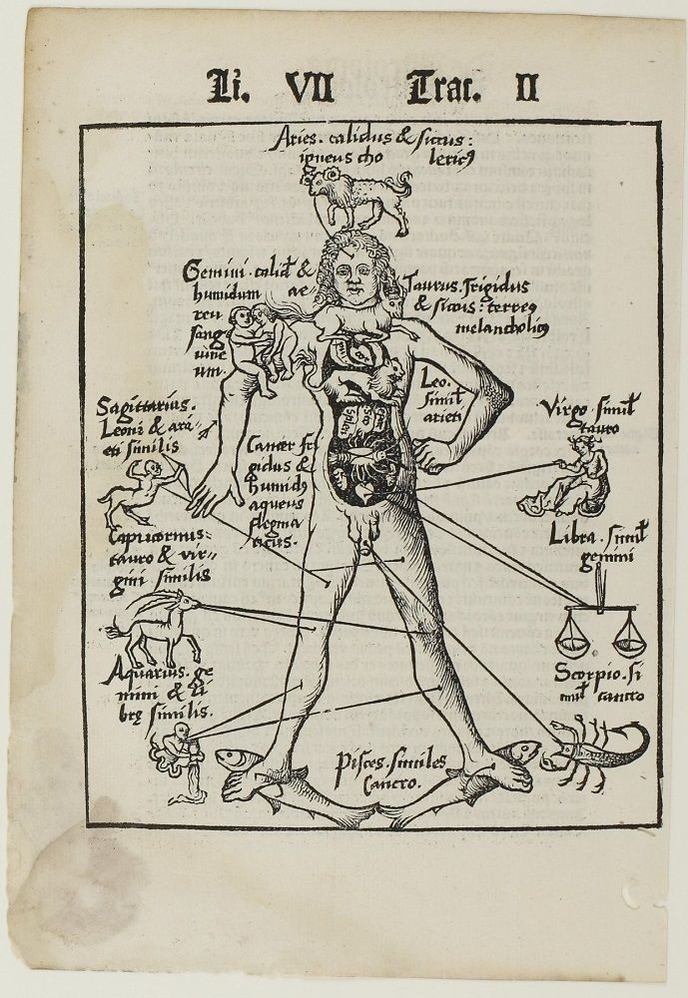 Li. VII Trac. II
Aries. calidus & siccus:
igneus cho lericꝰ
Gemini. calid̄ &
humidum ae-
reu
sang
uine
um.
Taurus. frigidus
& siccus: terreꝰ
melancholicꝰ
Leo.
simil̄
arieti
Sagittarius.
Leoni & ari-
eti similis
Cancer fri
gidus &
humidꝰ
aqueus
flegma
ticus.
Virgo. simil̄
tauro
Libra. simil̄
gemini
Capricornus-
tauro & vir-
gini similis
Aquarius. ge
mini & li
brę similis.
Scorpio. si
mil̄ cancro
Pisces. similes
Cancro.